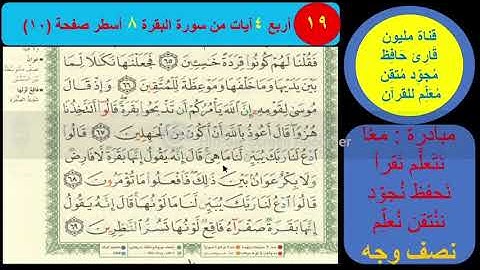 ١٩ أربع ٤ آيات من سورة البقرة ٨ أسطر صفحة (١٠)
قناة مليون
قارئ حافظ
مُجوّد مُتقن
مُعلّم للقرآن
مبادرة : معًا
نَتعلّم نَقرأ
نَحفظ نُجوّد
نُتقن نُعلّم
نصف وجه
فَقُلْنَا لَهُمْ كُونُوا۟ قِرَدَةً خَٰسِـِٔينَ ٦٥ فَجَعَلْنَٰهَا نَكَٰلًا لِّمَا
بَيْنَ يَدَيْهَا وَمَا خَلْفَهَا وَمَوْعِظَةً لِّلْمُتَّقِينَ ٦٦ وَإِذْ قَالَ
مُوسَىٰ لِقَوْمِهِۦٓ إِنَّ ٱللَّهَ يَأْمُرُكُمْ أَن تَذْبَحُوا۟ بَقَرَةً قَالُوٓا۟ أَتَتَّخِذُنَا
هُزُوًا قَالَ أَعُوذُ بِٱللَّهِ أَنْ أَكُونَ مِنَ ٱلْجَٰهِلِينَ ٦٧ قَالُوا۟
ٱدْعُ لَنَا رَبَّكَ يُبَيِّن لَّنَا مَا هِىَ قَالَ إِنَّهُۥ يَقُولُ إِنَّهَا بَقَرَةٌ لَّا فَارِضٌ
وَلَا بِكْرٌ عَوَانٌۢ بَيْنَ ذَٰلِكَ فَٱفْعَلُوا۟ مَا تُؤْمَرُونَ ٦٨
قَالُوا۟ ٱدْعُ لَنَا رَبَّكَ يُبَيِّن لَّنَا مَا لَوْنُهَا قَالَ إِنَّهُۥ يَقُولُ
إِنَّهَا بَقَرَةٌ صَفْرَآءُ فَاقِعٌ لَّوْنُهَا تَسُرُّ ٱلنَّٰظِرِينَ ٦٩